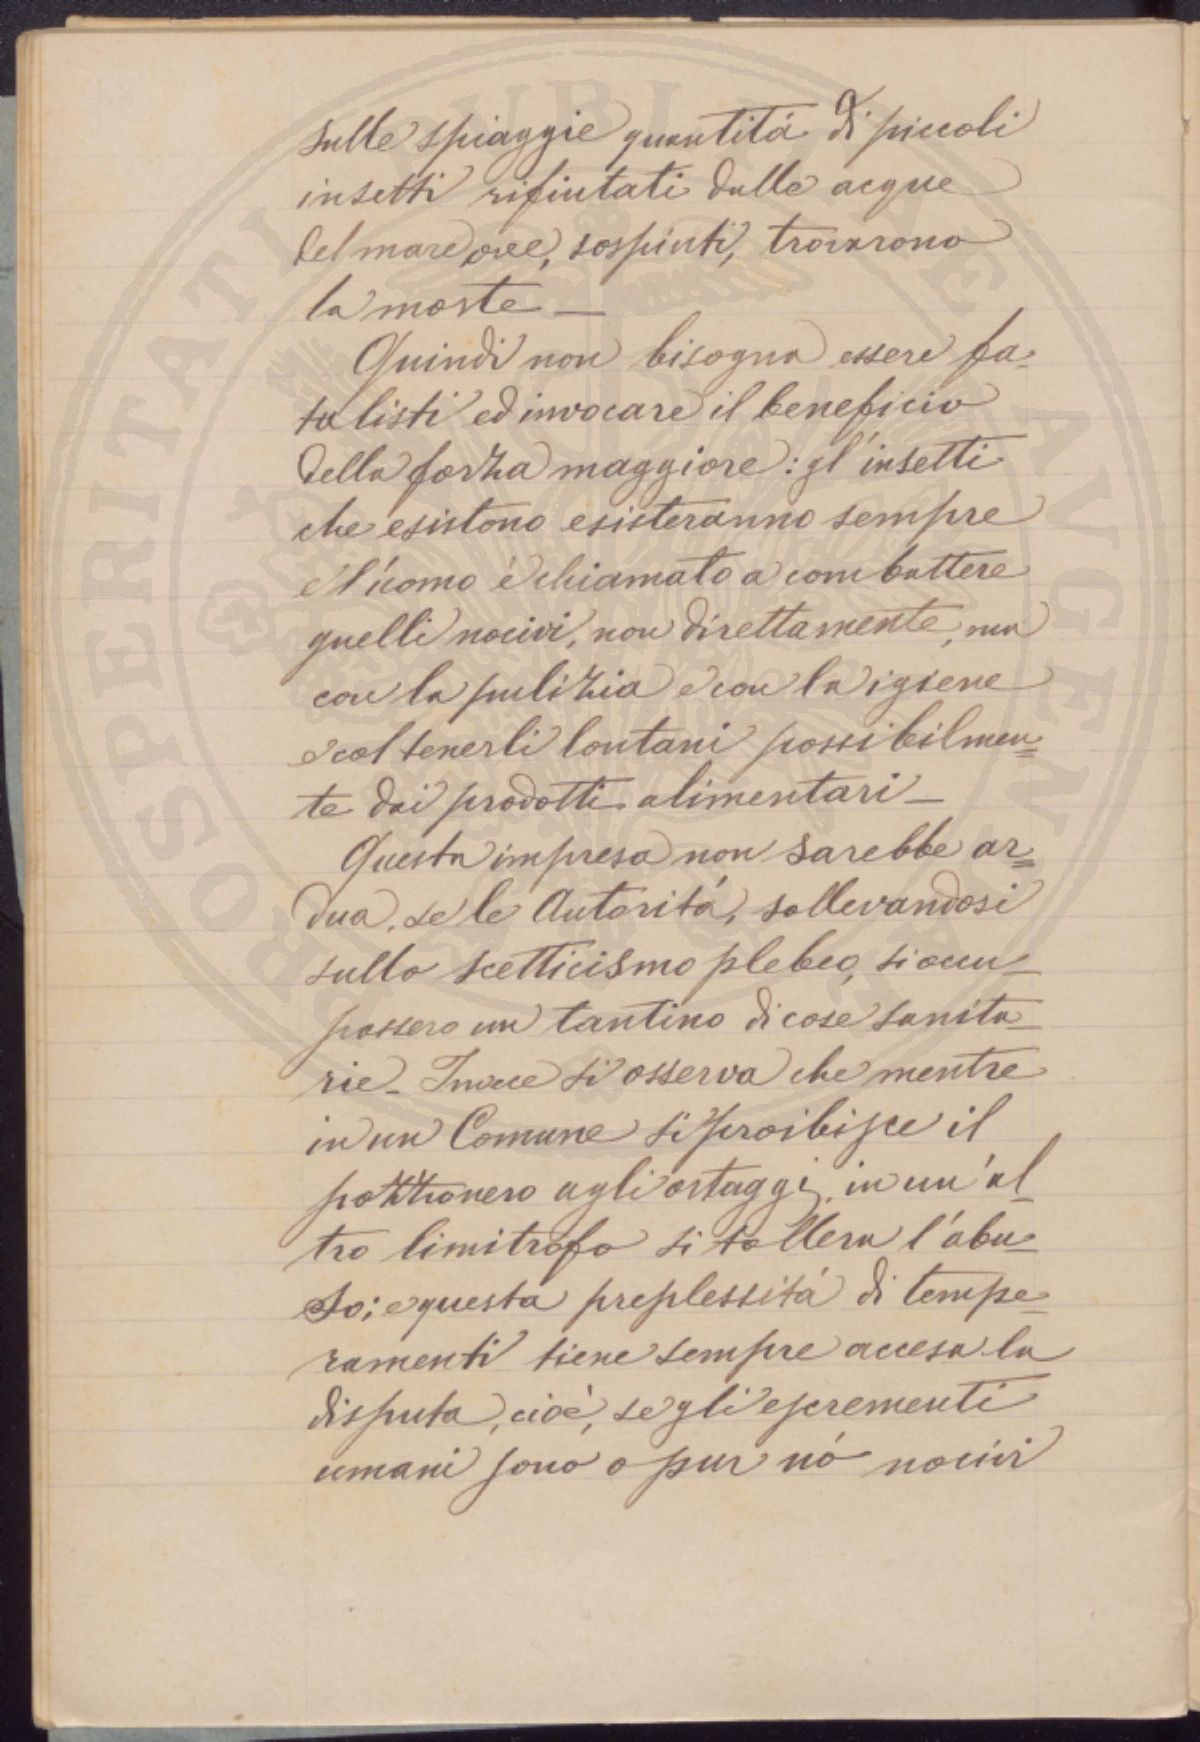 sulle spiaggie quantitá di piccoli
insetti rifiutati dalle acque
del mare ove, sospinti, trovarono
la morte_
Quindi non bisogna essere fa-
talisti ed invocare il beneficio
della forza maggiore: gl'insetti
che esistono esisteranno sempre
e l'uomo è chiamato a combattere
quelli nocivi, non direttamente, ma
con la pulizia e con la igiene
e col tenerli lontani possibilmen=
te dai prodotti alimentari_
Questa impresa non sarebbe ar=
dua, se le Autoritá, sollevandosi
sullo scetticismo plebeo, si occu-
passero un tantino di cose sanita-
rie_ Invece si osserva che mentre
in un Comune si proibisce il
pozzonero agli ortaggi, in un'al-
tro limitrofo si tollera l'abu-
so; e questa preplessitá di tempe-
ramenti tiene sempre accesa la
disputa, cioè, se gli escrementi
umani sono o pur nó nocivi
PROSPERITATI PUBLICAE AVGENDAE